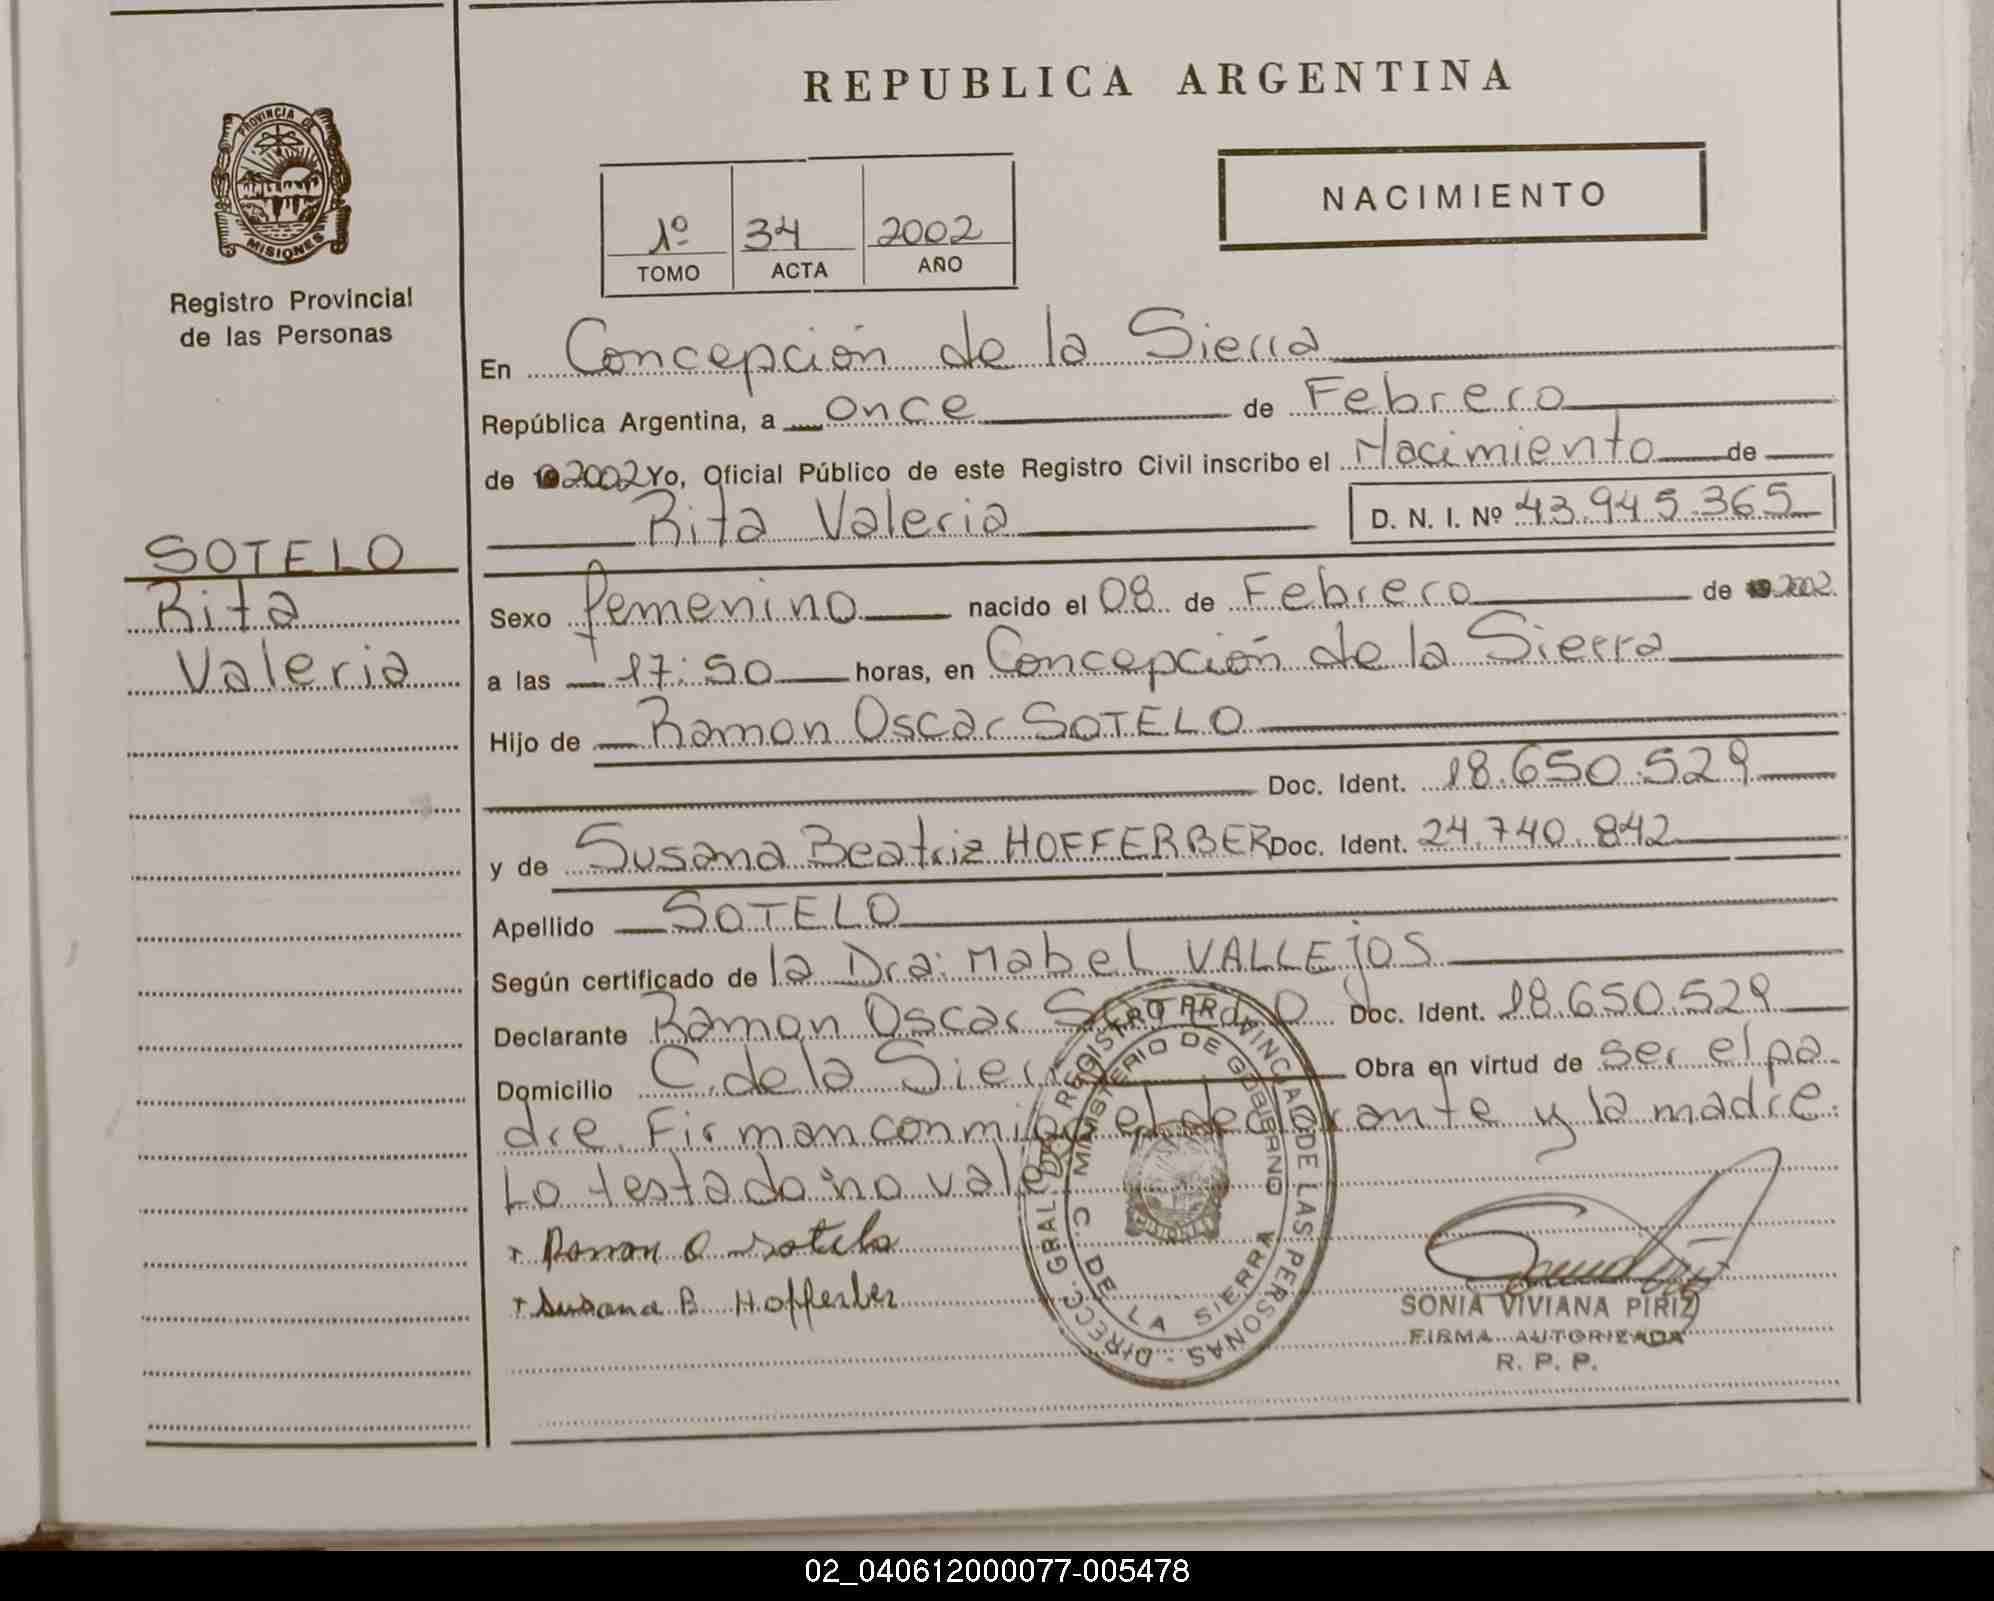 REPUBLICA ARGENTINA
PROVINCIA DE
MISIONES
Registro Provincial
de las Personas
NACIMIENTO
1º 34 2002
TOMO ACTA AÑO
En Concepción de la Sierra
República Argentina, a once de Febrero
de 2002 Yo, Oficial Público de este Registro Civil inscribo el Nacimiento de
Rita Valeria D. N. I. Nº 43.945.365
SOTELO
Rita
Valeria
Sexo femenino nacido el 08 de Febrero de 2002
a las 17:50 horas, en Concepción de la Sierra
Hijo de Ramon Oscar SOTELO
Doc. Ident. 18.650.529
y de Susana Beatriz HOFFERBER Doc. Ident. 24.740.842
Apellido SOTELO
Según certificado de la Dra. Mabel VALLEJOS
Declarante Ramon Oscar SOTELO Doc. Ident. 18.650.529
Domicilio C. de la Sierra Obra en virtud de ser el pa
dre. Firman conmigo el declarante y la madre.
Lo testado no vale
Ramon O Sotelo
Susana B Hofferber
DIRECC. GRAL. DEL REGISTRO PROVINCIAL DE LAS PERSONAS
MINISTERIO DE GOBIERNO
C. DE LA SIERRA
SONIA VIVIANA PIRIZ
FIRMA AUTORIZADA
R. P. P.
02_040612000077-005478